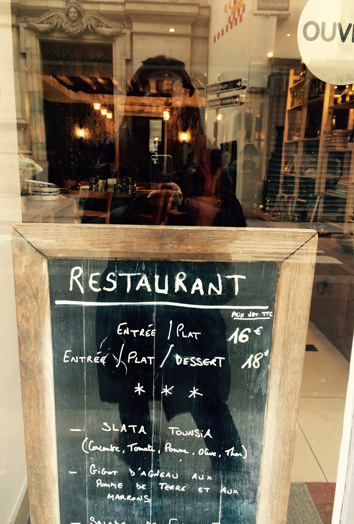 OUV
RESTAURANT
PRIX NET TTC
ENTRÉE / PLAT 16€
ENTRÉE / PLAT / DESSERT 18€
* * *
- SLATA TOUNSIA
(Concombre, Tomate, Pomme, Olive, Thon)
- GIGOT D'AGNEAU AUX
POMME DE TERRE ET AUX
MARRONS